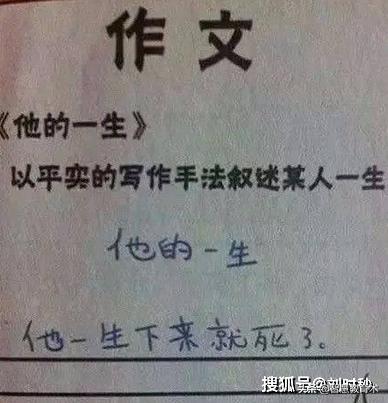 作文
《他的一生》
以平实的写作手法叙述某人一生
他的一生
他一生下来就死了。
搜狐号@刘时种